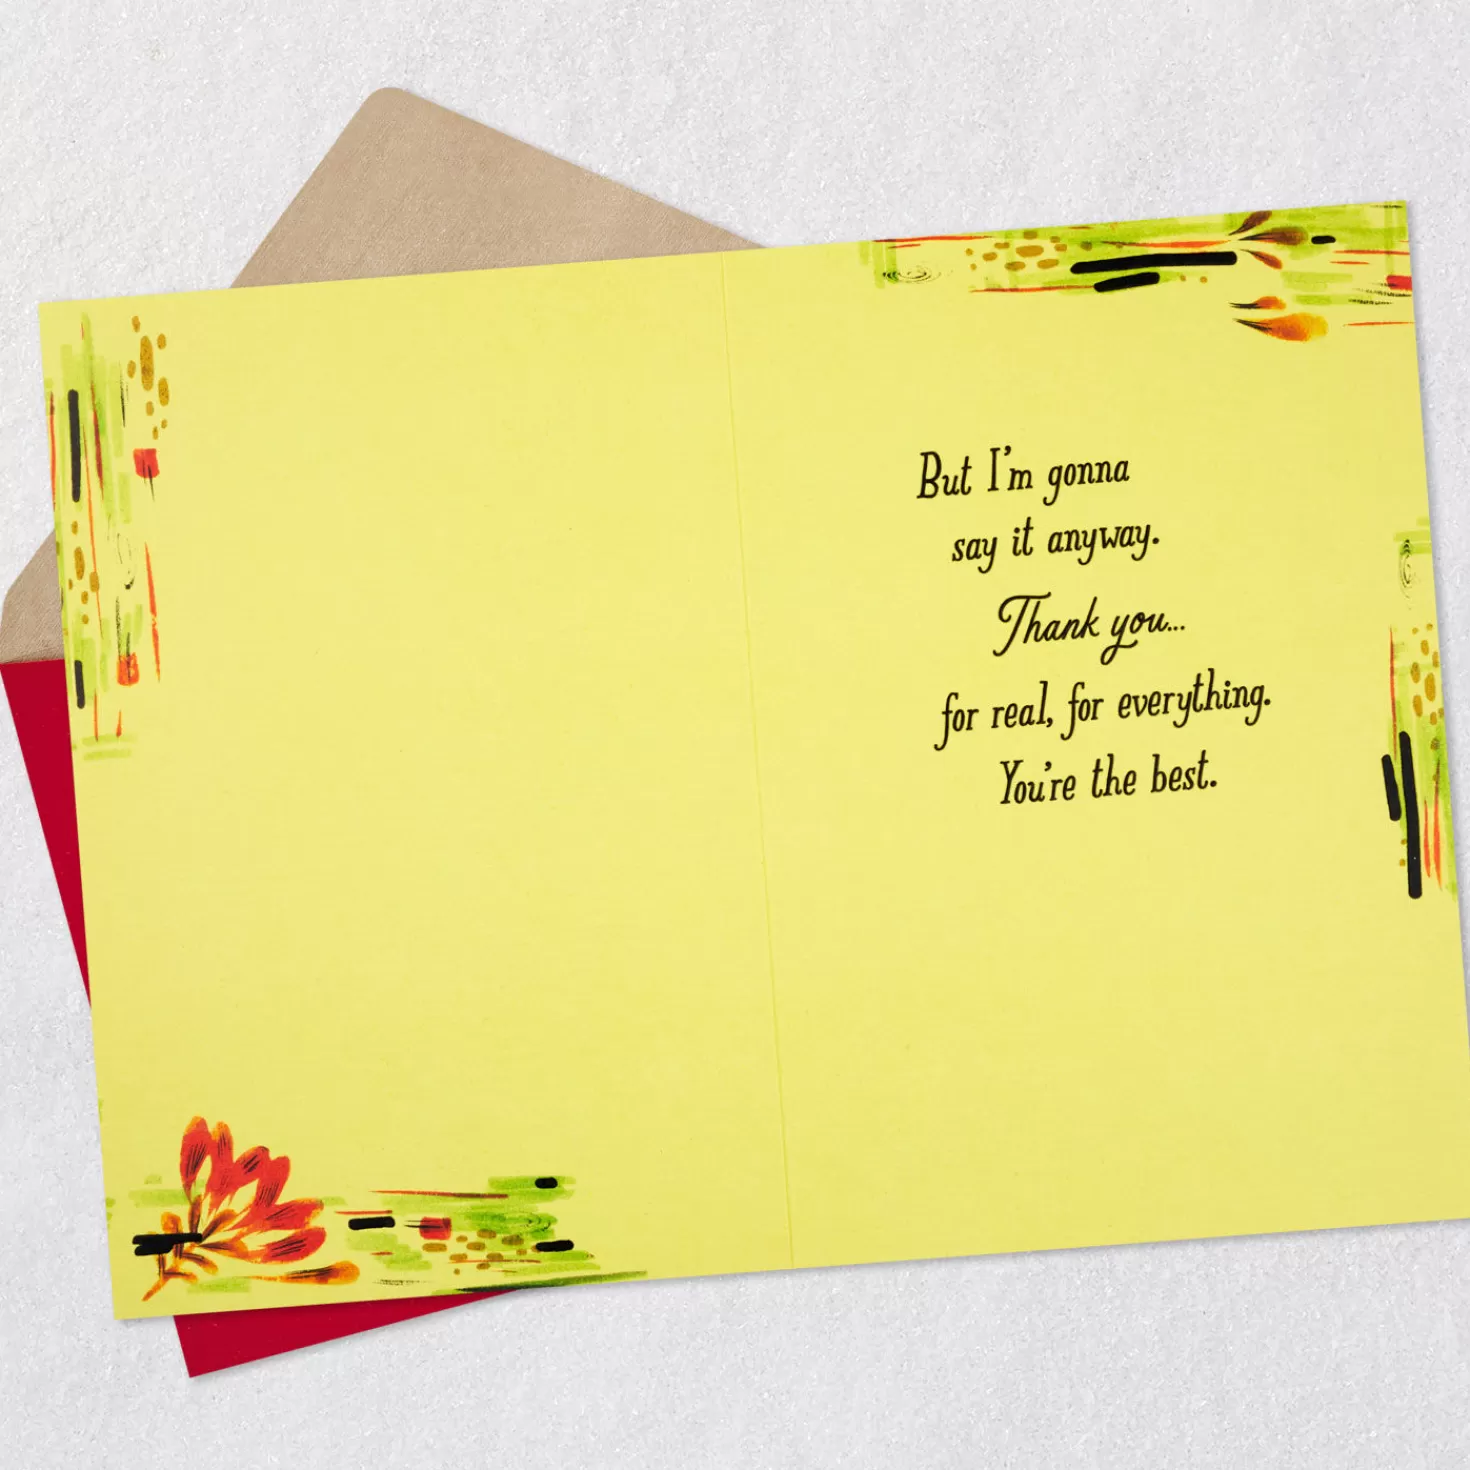 But I'm gonna
say it anyway.
Thank you...
for real, for everything.
You're the best.